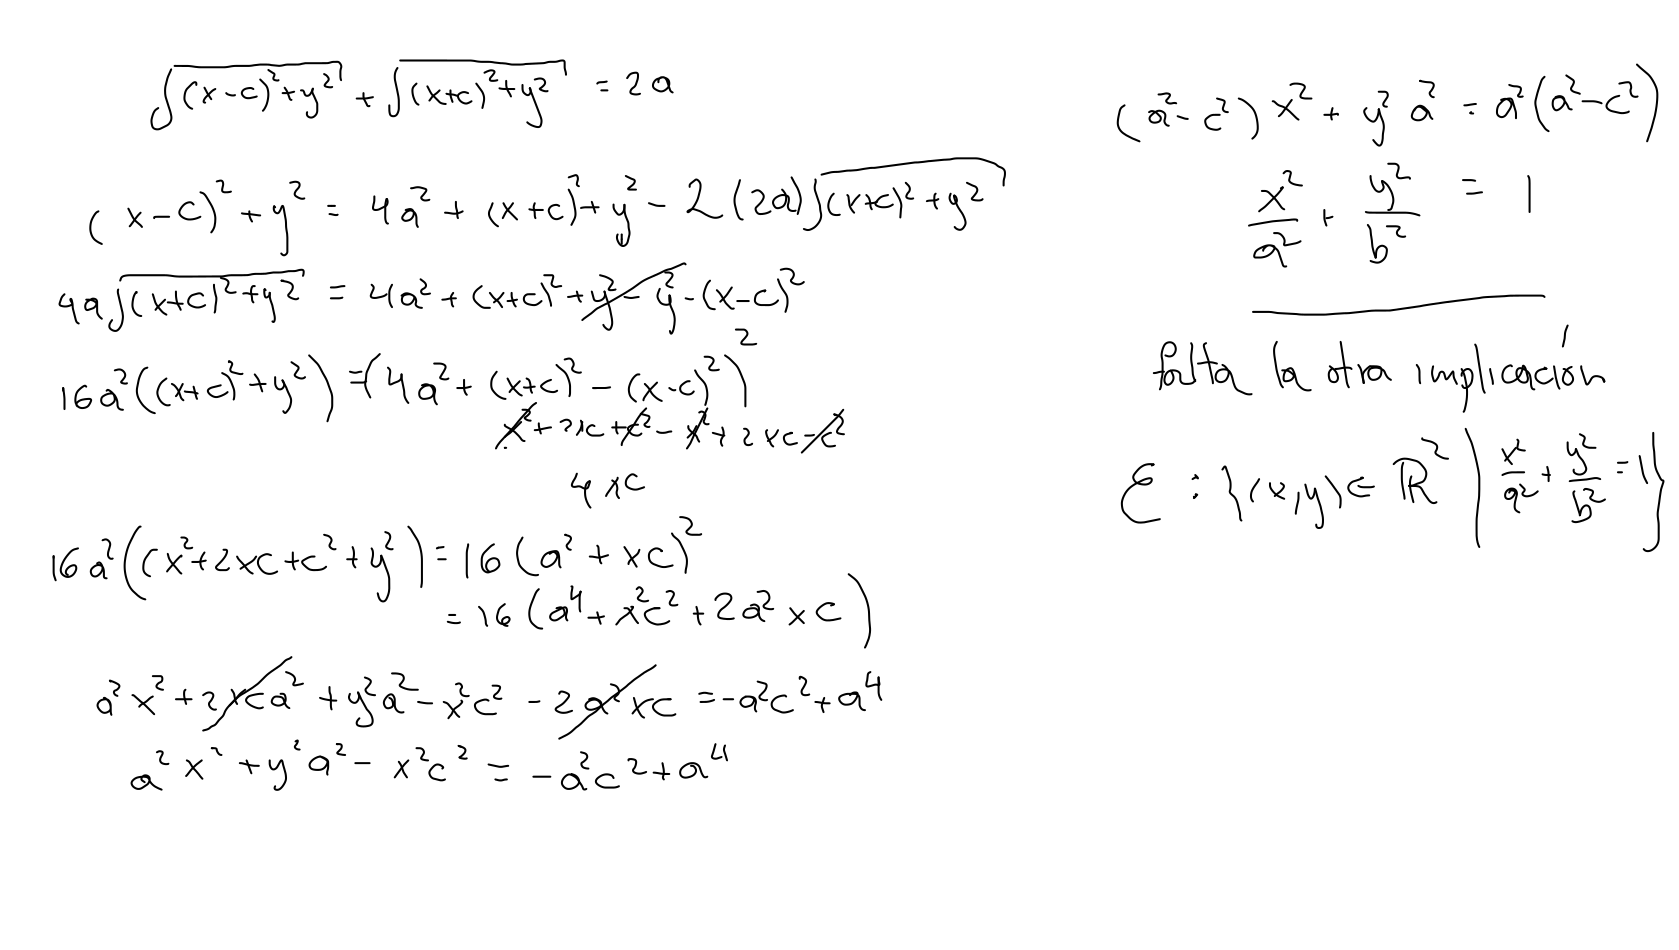 √((x-c)²+y²) + √((x+c)²+y²) = 2a
(x-c)²+y² = 4a² + (x+c)²+y² - 2(2a)√((x+c)²+y²)
4a√((x+c)²+y²) = 4a² + (x+c)²+y²-y²-(x-c)²
16a²((x+c)²+y²) = (4a² + (x+c)² - (x-c)²)²
x²+2xc+c²-x²+2xc-c²
4xc
16a²((x²+2xc+c²+y²) = 16(a²+xc)²
= 16(a⁴+x²c²+2a²xc)
a²x²+2xca²+y²a²-x²c²-2a²xc = -a²c²+a⁴
a²x²+y²a²-x²c² = -a²c²+a⁴
(a²-c²)x²+y²a² = a²(a²-c²)
x²/a² + y²/b² = 1
falta la otra implicación
ℰ : {(x,y)∈ℝ² | x²/a² + y²/b² = 1}